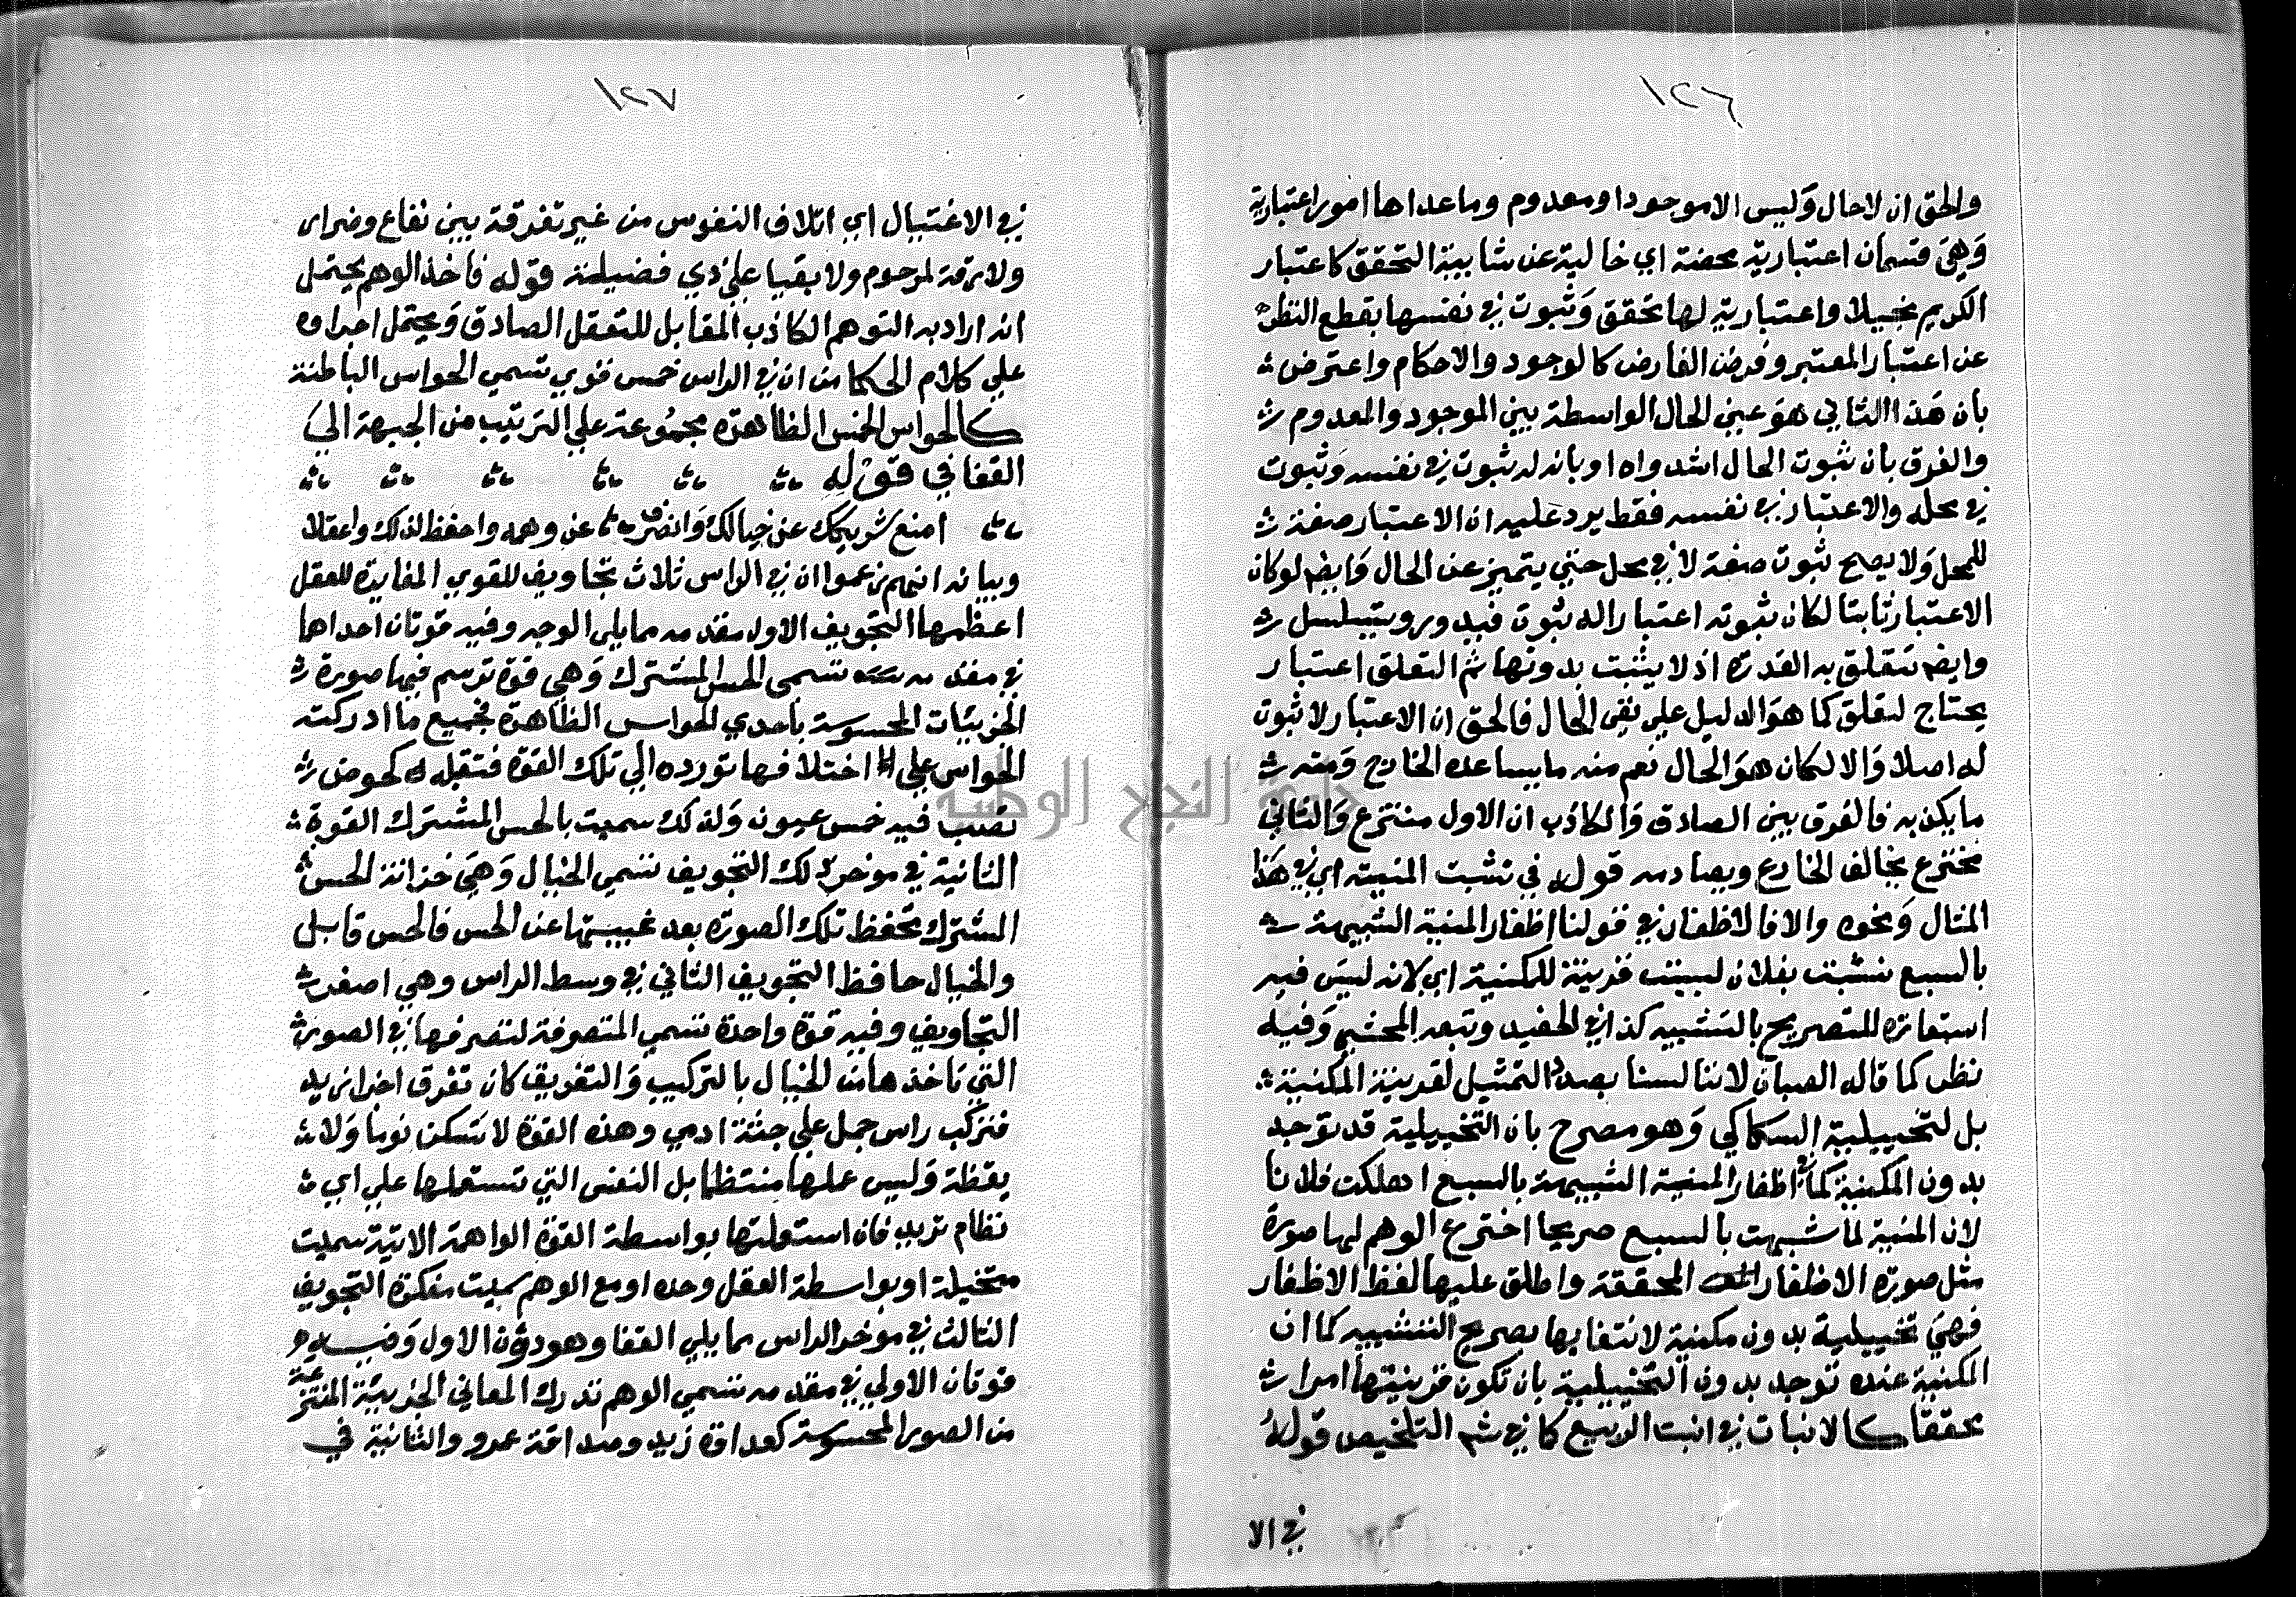 ١٢٦
والحق ان لا حال وليس الا موجودا ومعدوم وما عداها امور اعتبارية
وهي قسمان اعتبارية محضة اي خالية عن شايبة التحقق كاعتبار
الكريم بخيلا واعتبارية لها تحقق وثبوت في نفسها بقطع النظر
عن اعتبار المعتبر وفرض الفارض كالوجود والاحكام واعترض
بان هذا الثاني هو عين الحال الواسطة بين الموجود والمعدوم
والفرق بان ثبوت الحال اشد واه او بانه له ثبوت في نفسه وثبوت
في محله والاعتبار في نفسه فقط يرد عليه ان الاعتبار صفة
للمحل ولا يصح ثبوت صفة لا في محل حتي يتميز عن الحال وايضم لو كان
الاعتبار ثابتا لكان ثبوته اعتبارا له ثبوت فيدور ويتسلسل
وايضم تتعلق به القدرة اذ لا يثبت بدونها ثم التعلق اعتبار
يحتاج لتعلق كما هو الدليل علي نفي الحال فالحق ان الاعتبار لا ثبوت
له اصلا والا لكان هو الحال نعم منه ما يساعده الخارج ومنه
ما يكذبه فالفرق بين الصادق والكاذب ان الاول منتزع والثاني
مخترع يخالف الخارج ويصادمه قوله في تشبث المنية اي في هذا
المثال ونحوه والا فالاظفار في قولنا اظفار المنية الشبيهة
بالسبع نشبت بفلان ليست قرينة للمكنية اي لانه ليس فيه
استعارة للتصريح بالتشبيه كذا في الحفيد وتبعه المحشي وفيه
نظر كما قاله الصبان لاننا لسنا بصدد التمثيل لقرينة المكنية
بل لتخييلية السكاكي وهو مصرح بان التخييلية قد توجد
بدون المكنية كما في اظفار المنية الشبيهة بالسبع اهلكت فلانا
لان المنية لما شبهت بالسبع صريحا اخترع الوهم لها صورة
مثل صورة الاظفار المحققة واطلق عليها لفظ الاظفار
فهي تخييلية بدون مكنية لانتفايها بصريح التشبيه كما ان
المكنية عنده توجد بدون التخييلية بان تكون قرينتها امرا
محققا كالانبات في انبت الربيع كما في شم التلخيص قوله
في الا
١٢٧
في الاغتيال اي اتلاف النفوس من غير تفرقة بين نفاع وضرار
ولا رقة لمرحوم ولا بقيا علي ذي فضيلة قوله فاخذ الوهم يحتمل
انه اراد به التوهم الكاذب المقابل للتعقل الصادق ويحتمل اجراوه
علي كلام الحكما من ان في الراس خمس قوي تسمي الحواس الباطنة
كالحواس الخمس الظاهرة مجموعة علي الترتيب من الجبهة الي
القفا في قوله
امنع شريكك عن خيالك وانصرف عن وهمه واحفظ لذلك واعقلا
وبيانه انهم زعموا ان في الراس ثلاث تجاويف للقوي المغايرة للعقل
اعظمها التجويف الاول مقدمه مما يلي الوجه وفيه قوتان احداها
في مقدمه تسمي الحس المشترك وهي قوة ترسم فيها صورة
الجزييات المحسوسة باحدي الحواس الظاهرة فجميع ما ادركته
الحواس علي اختلافها تورده الي تلك القوة فتقبله كحوض
تصب فيه خمس عيون ولذلك سميت بالحس المشترك القوة
الثانية في موخر ذلك التجويف تسمي الخيال وهي خزانة الحس
المشترك تحفظ تلك الصورة بعد غيبتها عن الحس فالحس قابل
والخيال حافظ التجويف الثاني في وسط الراس وهي اصغر
التجاويف وفيه قوة واحدة تسمي المتصرفة لتصرفها في الصورة
التي تاخذها من الخيال بالتركيب والتفريق كان تفرق اجزا زيد
فتركب راس جمل علي جثة ادمي وهذه القوة لا تسكن نوما ولا
يقظة وليس عملها منتظما بل النفس التي تستعملها علي اي
نظام تريد فان استعملتها بواسطة القوة الواهمة الاتية سميت
متخيلة او بواسطة العقل وحده او مع الوهم سميت مفكرة التجويف
الثالث في موخر الراس مما يلي القفا وهو دون الاول وفيه
قوتان الاولي في مقدمه تسمي الوهم تدرك المعاني الجزيية المنتزعة
من الصور المحسوسة كعداوة زيد وصداقة عمرو والثانية في
جامعة النجاح الوطنية